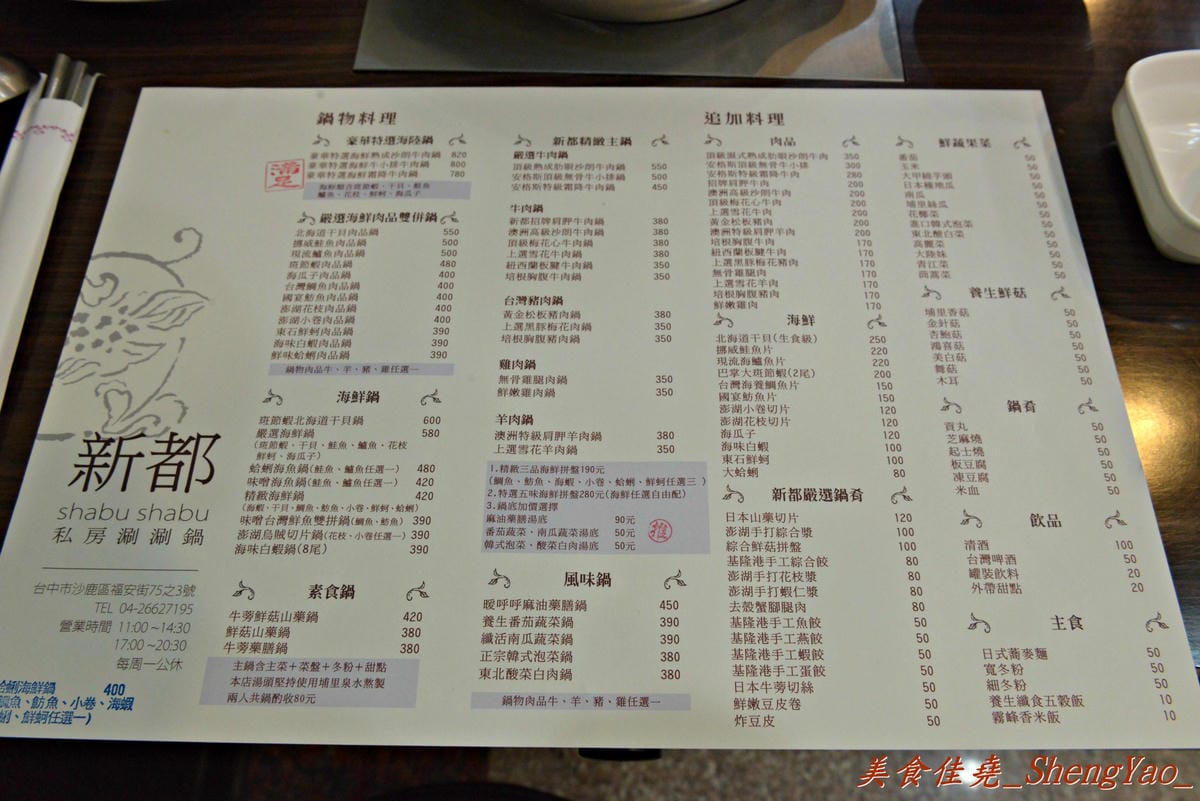 鍋物料理
豪華特選海陸鍋
豪華特選海鮮熟成沙朗牛肉鍋 820
豪華特選海鮮牛小排牛肉鍋 800
豪華特選海鮮霜降牛肉鍋 780
滿足
海鮮類含班節蝦、干貝、鮭魚
鱸魚、花枝、鮮蚵、海瓜子
嚴選海鮮肉品雙併鍋
北海道干貝肉品鍋 550
挪威鮭魚肉品鍋 500
現流鱸魚肉品鍋 500
班節蝦肉品鍋 480
海瓜子肉品鍋 400
台灣鯛魚肉品鍋 400
國宴魴魚肉品鍋 400
澎湖花枝肉品鍋 400
澎湖小卷肉品鍋 400
東石鮮蚵肉品鍋 390
海味白蝦肉品鍋 390
鮮味蛤蜊肉品鍋 390
鍋物肉品牛、羊、豬、雞任選一
海鮮鍋
斑節蝦北海道干貝鍋 600
嚴選海鮮鍋 580
(斑節蝦、干貝、鮭魚、鱸魚、花枝
鮮蚵、海瓜子)
蛤蜊海魚鍋(鮭魚、鱸魚任選一) 480
味噌海魚鍋(鮭魚、鱸魚任選一) 420
精緻海鮮鍋 420
(海蝦、干貝、鯛魚、魴魚、小卷、鮮蚵、蛤蜊)
味噌台灣鮮魚雙拼鍋(鯛魚、魴魚) 390
澎湖烏賊切片鍋(花枝、小卷任選一) 390
海味白蝦鍋(8尾) 390
素食鍋
牛蒡鮮菇山藥鍋 420
鮮菇山藥鍋 380
牛蒡藥膳鍋 380
主鍋含主菜+菜盤+冬粉+甜點
本店湯頭堅持使用埔里泉水熬製
兩人共鍋酌收80元
新都精緻主鍋
嚴選牛肉鍋
頂級熟成肋眼沙朗牛肉鍋 550
安格斯頂級無骨牛小排鍋 500
安格斯特級霜降牛肉鍋 450
牛肉鍋
新都招牌肩胛牛肉鍋 380
澳洲高級沙朗牛肉鍋 380
頂級梅花心牛肉鍋 380
上選雪花牛肉鍋 380
紐西蘭板腱牛肉鍋 350
培根胸腹牛肉鍋 350
台灣豬肉鍋
黃金松板豬肉鍋 380
上選黑豚梅花肉鍋 350
培根胸腹豬肉鍋 350
雞肉鍋
無骨雞腿肉鍋 350
鮮嫩雞肉鍋 350
羊肉鍋
澳洲特級肩胛羊肉鍋 380
上選雪花羊肉鍋 350
1.精緻三品海鮮拼盤190元
(鯛魚、魴魚、海蝦、小卷、蛤蜊、鮮蚵任選三)
2.特選五味海鮮拼盤280元(海鮮任選自由配)
3.鍋底加價選擇
麻油藥膳湯底 90元
番茄蔬菜、南瓜蔬菜湯底 50元
韓式泡菜、酸菜白肉湯底 50元
推
風味鍋
暖呼呼麻油藥膳鍋 450
養生番茄蔬菜鍋 390
纖活南瓜蔬菜鍋 390
正宗韓式泡菜鍋 380
東北酸菜白肉鍋 380
鍋物肉品牛、羊、豬、雞任選一
追加料理
肉品
頂級濕式熟成肋眼沙朗牛肉 350
安格斯頂級無骨牛小排 300
安格斯特級霜降牛肉 280
招牌肩胛牛肉 200
澳洲高級沙朗牛肉 200
頂級梅花心牛肉 200
上選雪花牛肉 200
黃金松板豬肉 200
澳洲特級肩胛羊肉 200
培根胸腹牛肉 170
紐西蘭板腱牛肉 170
上選黑豚梅花豬肉 170
無骨雞腿肉 170
上選雪花羊肉 170
培根胸腹豬肉 170
鮮嫩雞肉 170
海鮮
北海道干貝(生食級) 250
挪威鮭魚片 220
現流海鱸魚片 220
巴掌大斑節蝦(2尾) 200
台灣海養鯛魚片 150
國宴魴魚片 150
澎湖小卷切片 120
澎湖花枝切片 120
海瓜子 120
海味白蝦 100
東石鮮蚵 100
大蛤蜊 80
新都嚴選鍋肴
日本山藥切片 120
澎湖手打綜合漿 100
綜合鮮菇拼盤 100
基隆港手工綜合餃 80
澎湖手打花枝漿 80
澎湖手打蝦仁漿 80
去殼蟹腳腿肉 80
基隆港手工魚餃 50
基隆港手工燕餃 50
基隆港手工蝦餃 50
基隆港手工蛋餃 50
日本牛蒡切絲 50
鮮嫩豆皮卷 50
炸豆皮 50
鮮蔬果菜
番茄 50
玉米 50
大甲檳芋頭 50
日本種地瓜 50
南瓜 50
埔里絲瓜 50
花椰菜 50
進口韓式泡菜 50
東北酸白菜 50
高麗菜 50
大陸妹 50
青江菜 50
茼蒿菜 50
養生鮮菇
埔里香菇 50
金針菇 50
杏鮑菇 50
鴻喜菇 50
美白菇 50
舞菇 50
木耳 50
鍋肴
貢丸 50
芝麻燒 50
起士燒 50
板豆腐 50
凍豆腐 50
米血 50
飲品
清酒 100
台灣啤酒 50
罐裝飲料 20
外帶甜點 20
主食
日式蕎麥麵 50
寬冬粉 50
細冬粉 50
養生纖食五穀飯 10
霧峰香米飯 10
新都
shabu shabu
私房涮涮鍋
台中市沙鹿區福安街75之3號
TEL 04-26627195
營業時間 11:00~14:30
17:00~20:30
每周一公休
蛤蜊海鮮鍋 400
鯛魚、魴魚、小卷、海蝦
蜊、鮮蚵任選一)
美食佳堯_ShengYao_